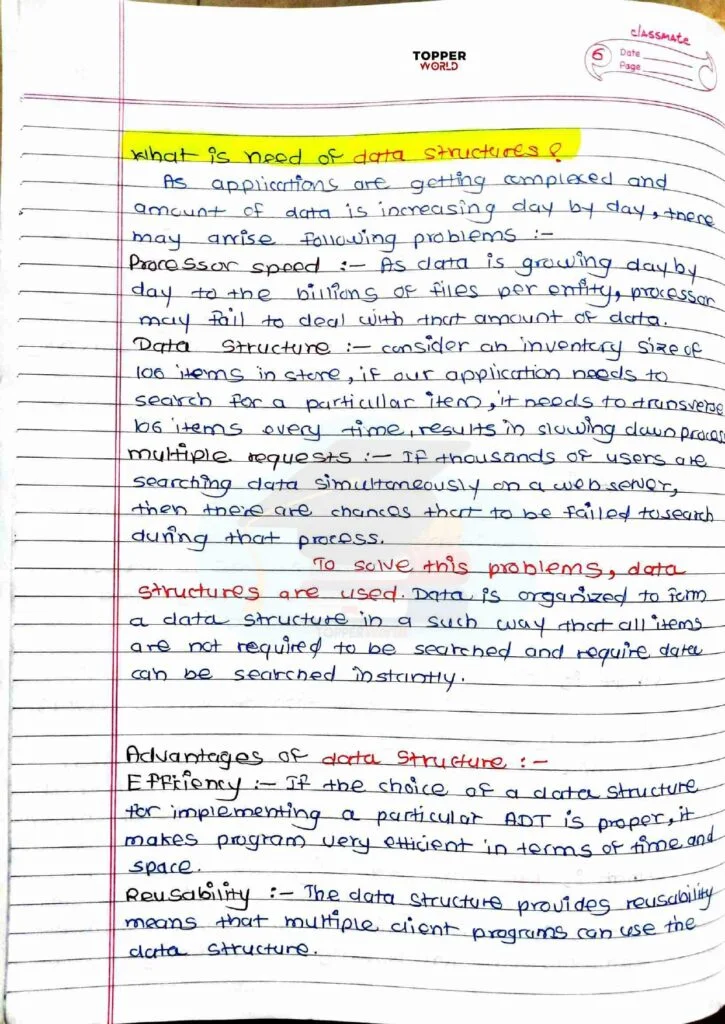 classmate
TOPPER
WORLD
6
Date
Page
What is need of data structures?
As applications are getting complexed and
amount of data is increasing day by day, there
may arrise following problems :-
Processor speed :- As data is growing day by
day to the billions of files per entity, processor
may fail to deal with that amount of data.
Data Structure :- consider an inventory size of
106 items in store, if our application needs to
search for a particular item, it needs to transverse
106 items every time, results in slowing down process
multiple requests :- If thousands of users are
searching data simultaneously on a web server,
then there are chances that to be failed to search
during that process.
To solve this problems, data
structures are used. Data is organized to form
a data structure in a such way that all items
are not required to be searched and require data
can be searched instantly.
Advantages of data structure :-
Efficiency :- If the choice of a data structure
for implementing a particular ADT is proper, it
makes program very efficient in terms of time and
space.
Reusability :- The data structure provides reusability
means that multiple client programs can use the
data structure.